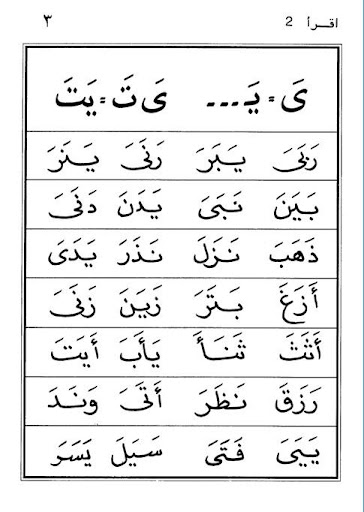 اقرأ 2 ٣
ىَ = يَـ... ىَ تَ = يَتَ
رَبَىَ يَبَرَ رَنَىَ يَنَرَ
بَيَنَ نَبَىَ يَدَنَ دَنَىَ
ذَهَبَ نَزَلَ نَذَرَ يَدَىَ
أَزَغَ بَتَرَ زَيَنَ زَنَىَ
أَثَثَ ثَنَأَ يَأَبَ أَيَتَ
رَزَقَ نَظَرَ أَتَىَ وَنَدَ
يَيَىَ فَتَىَ سَيَلَ يَسَرَ